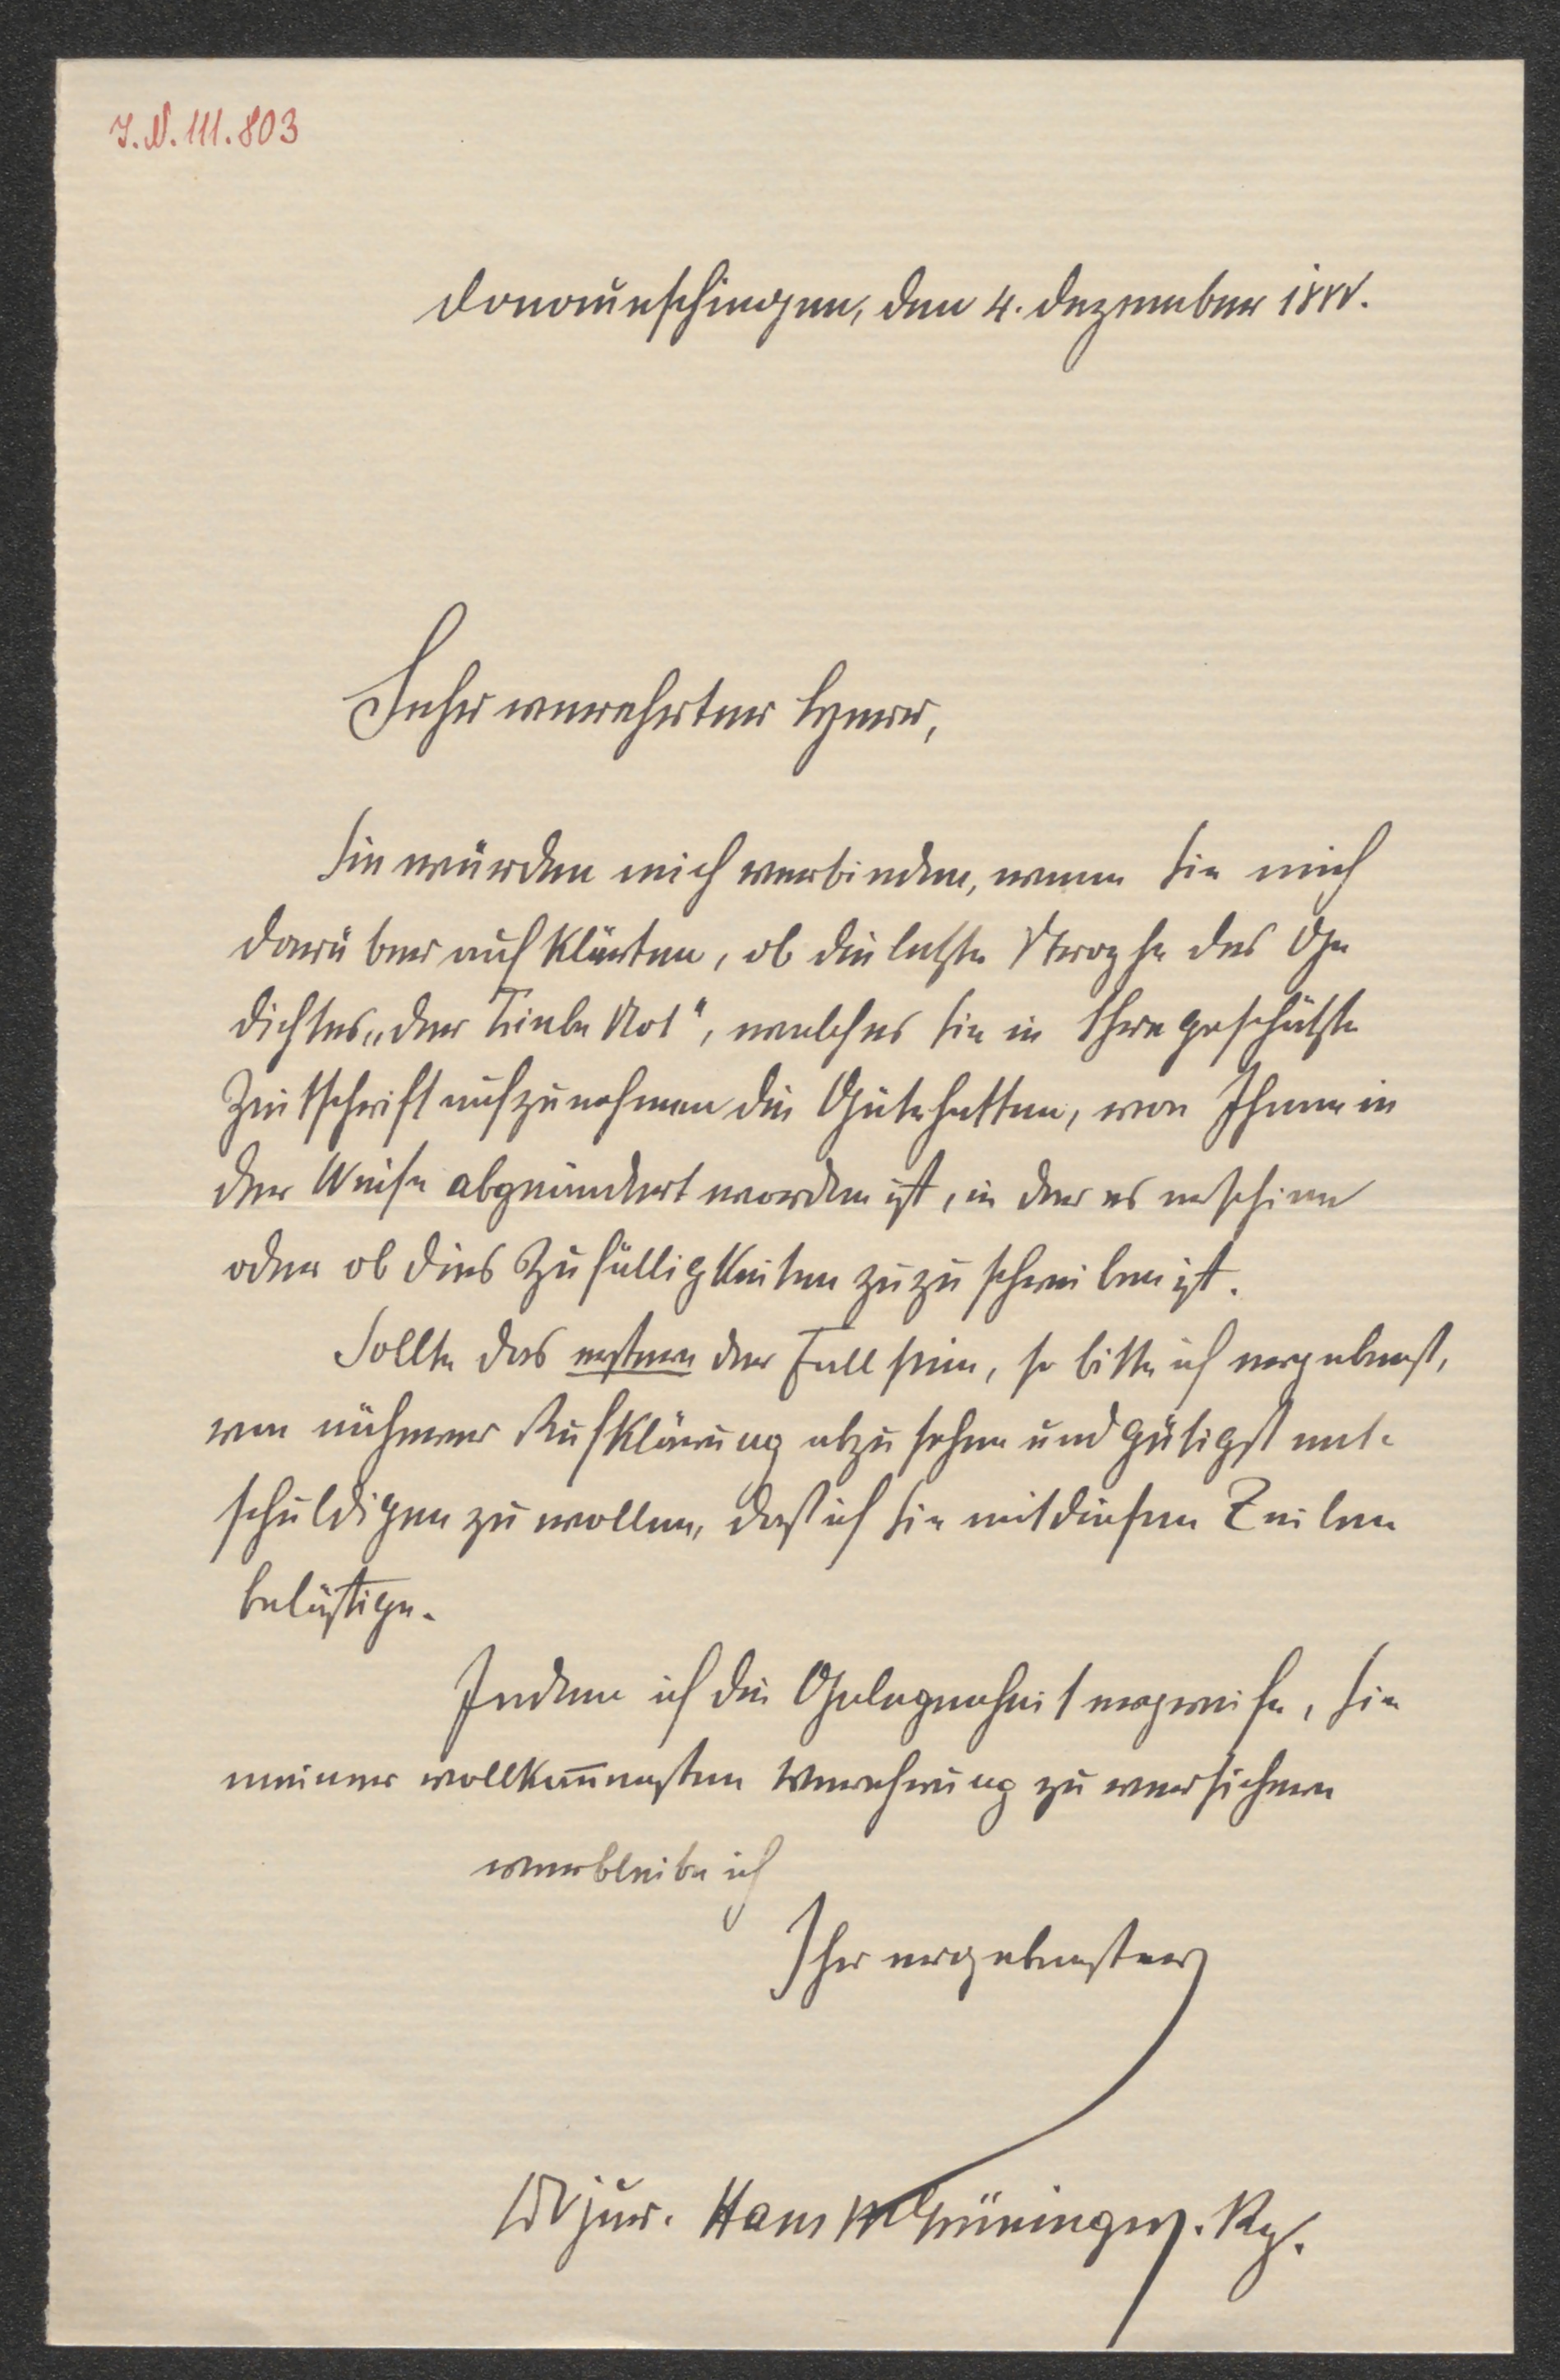 I.N. 111.803
Donaueschingen, den 4. Dezember 1888.
Sehr verehrter Herr,
Sie würden mich verbinden, wenn Sie mich
darüber aufklärten, ob die letzte Strophe des Ge
dichtes „Der Liebe Not", welches Sie in Ihre geschätzte
Zeitschrift aufzunehmen die Güte hatten, von Ihnen in
der Weise abgeändert worden ist, in der es erschien
oder ob dies Zufälligkeiten zuzuschreiben ist.
Sollte das erstere der Fall sein, so bitte ich ergebenst,
von näherer Aufklärung abzusehen und gütigst ent-
schuldigen zu wollen, daß ich Sie mit diesen Zeilen
belästige.
Indem ich die Gelegenheit ergreife, Sie
meiner vollkom̅ensten Verehrung zu versichern
verbleibe ich
Ihr ergebenster
jur. Hans Grüninger.